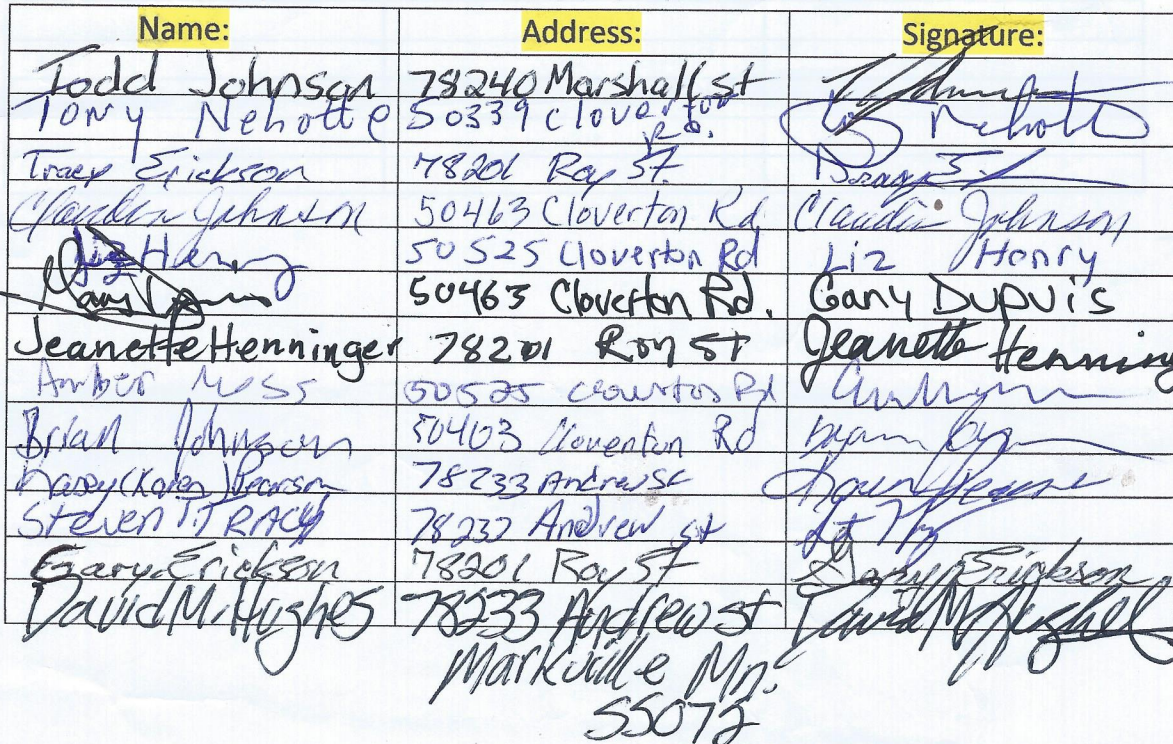 Name: Address: Signature:
Todd Johnson 78240 Marshall st
Tony Nehotte 50339 Cloverton Rd. Tony Nehotte
Tracy Erickson 78201 Roy St.
Claudia Johnson 50463 Cloverton Rd Claudia Johnson
Liz Henry 50525 Cloverton Rd Liz Henry
50463 Cloverton Rd. Gary Dupuis
Jeanette Henninger 78201 Roy St Jeanette Henning
Amber 50525 Cloverton Rd
Brian Johnson 50463 Cloverton Rd
Kasey (Karen) Pearson 78233 Andrew St Karen
Steven T TRACY 78232 Andrew st
Gary Erickson 78201 Roy St Gary Erickson
David M. Hughes 78233 Andrew st David M Hughes
Markville Mn.
55072